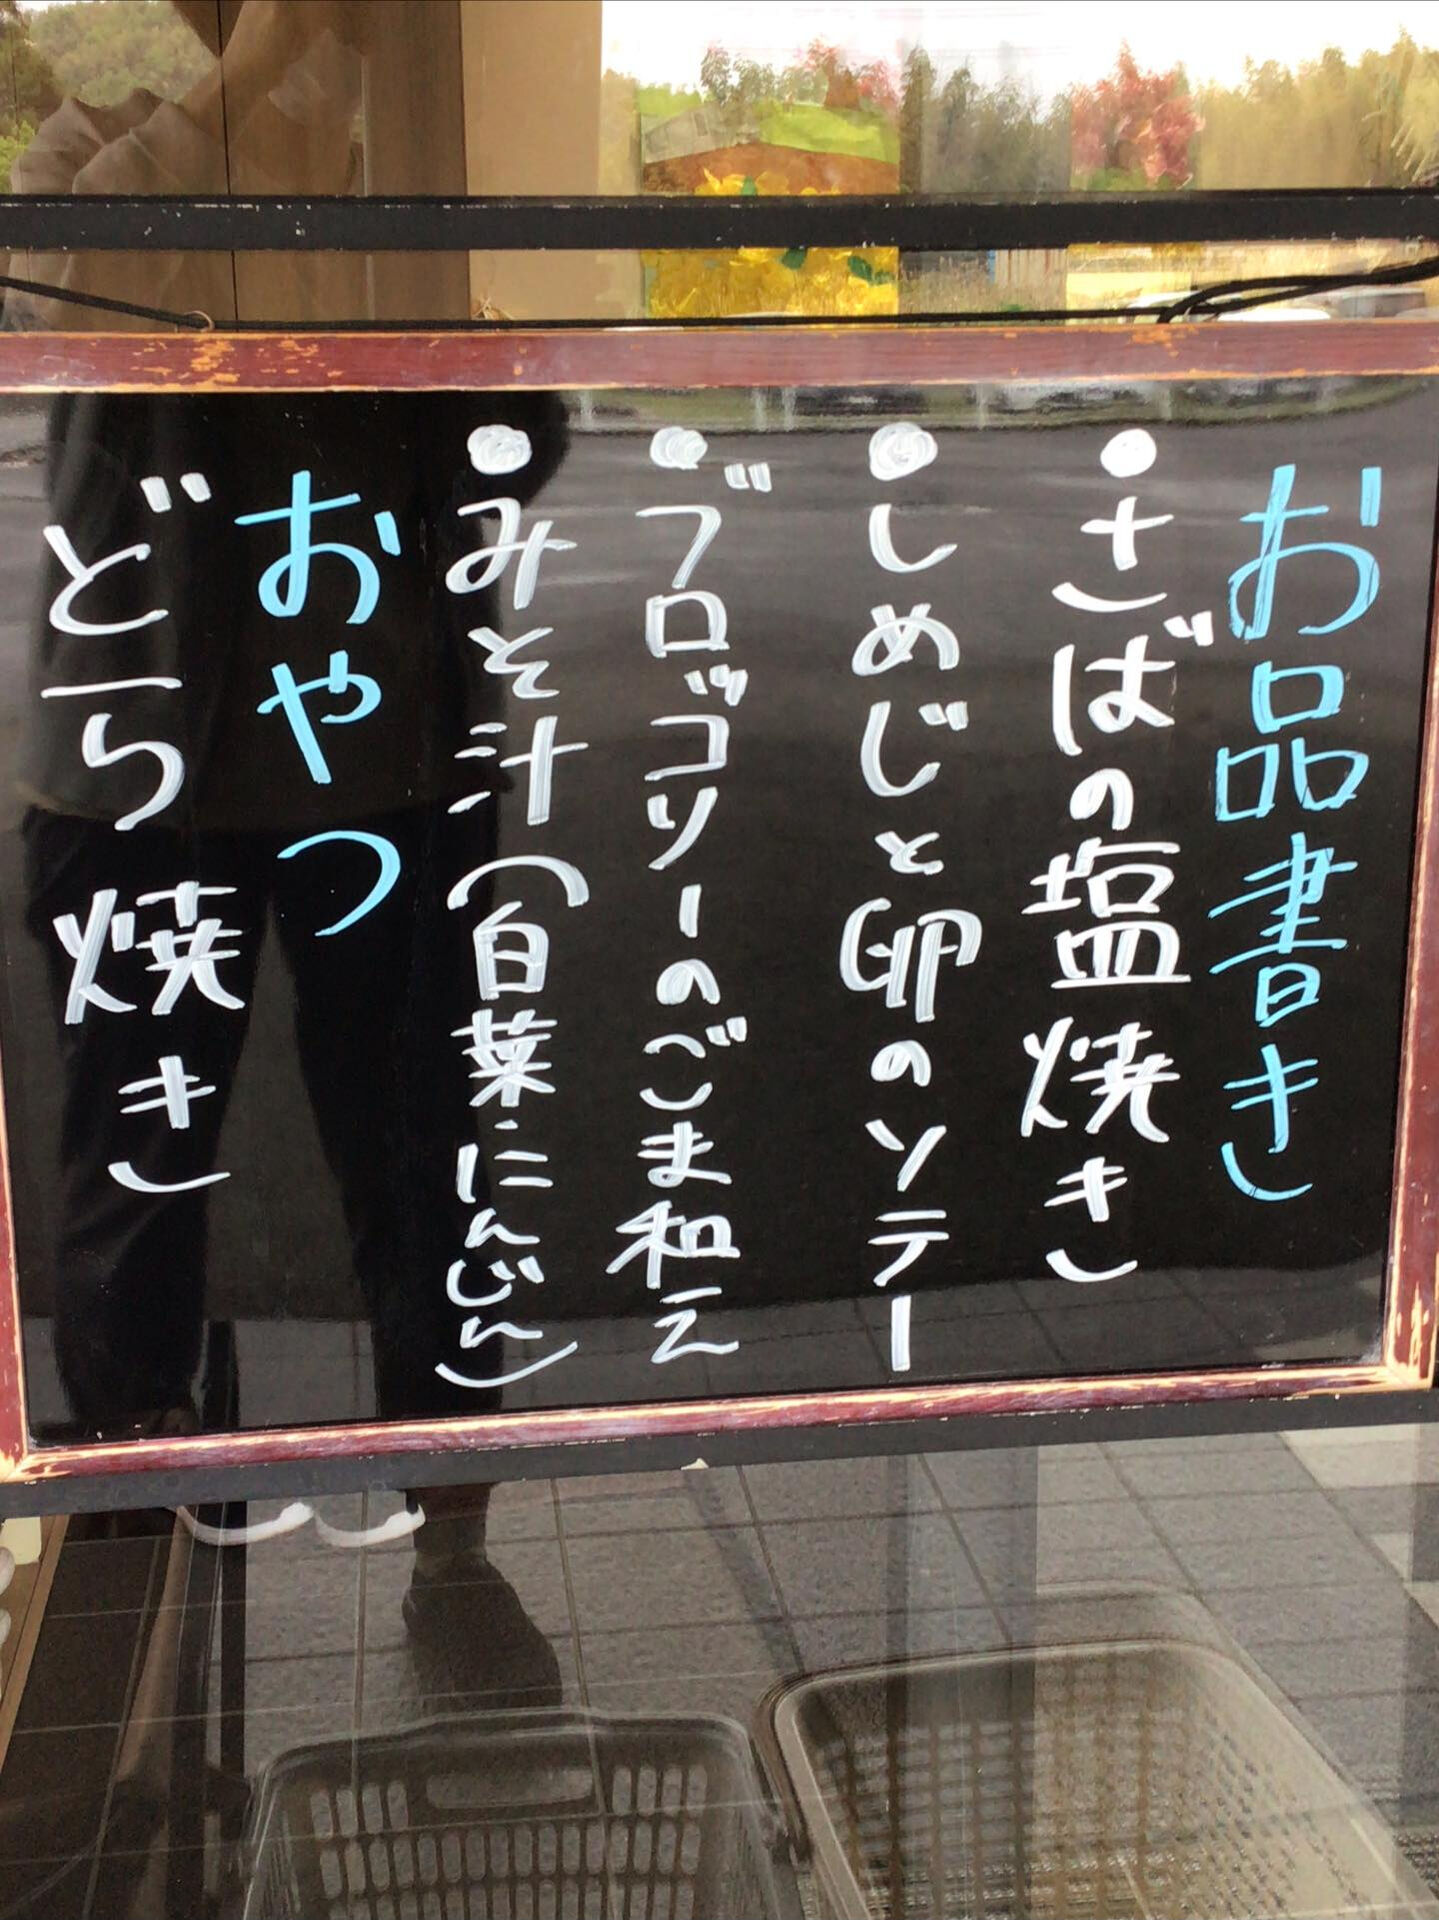 お品書き
・さばの塩焼き
・しめじと卵のソテー
・ブロッゴリーのごま和え
・みそ汁(白菜・にんじん)
おやつ
どら焼き